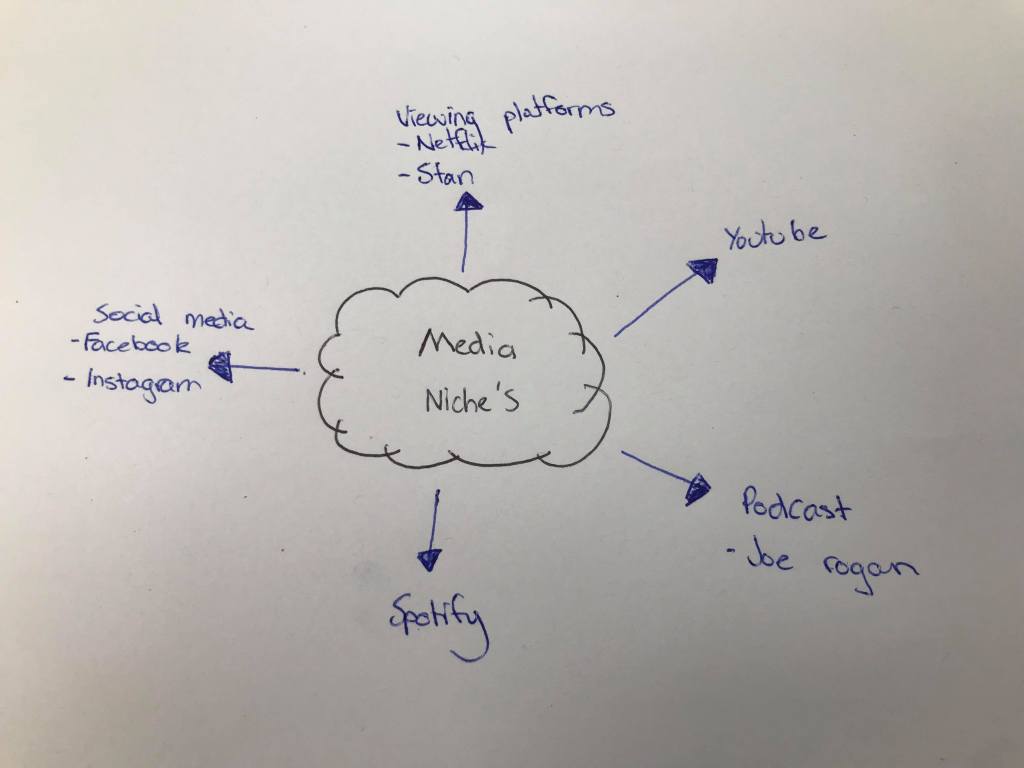 Viewing platforms
- Netflix
- Stan
Youtube
Social media
- Facebook
- Instagram
Media
Niche's
Podcast
- Joe rogan
Spotify